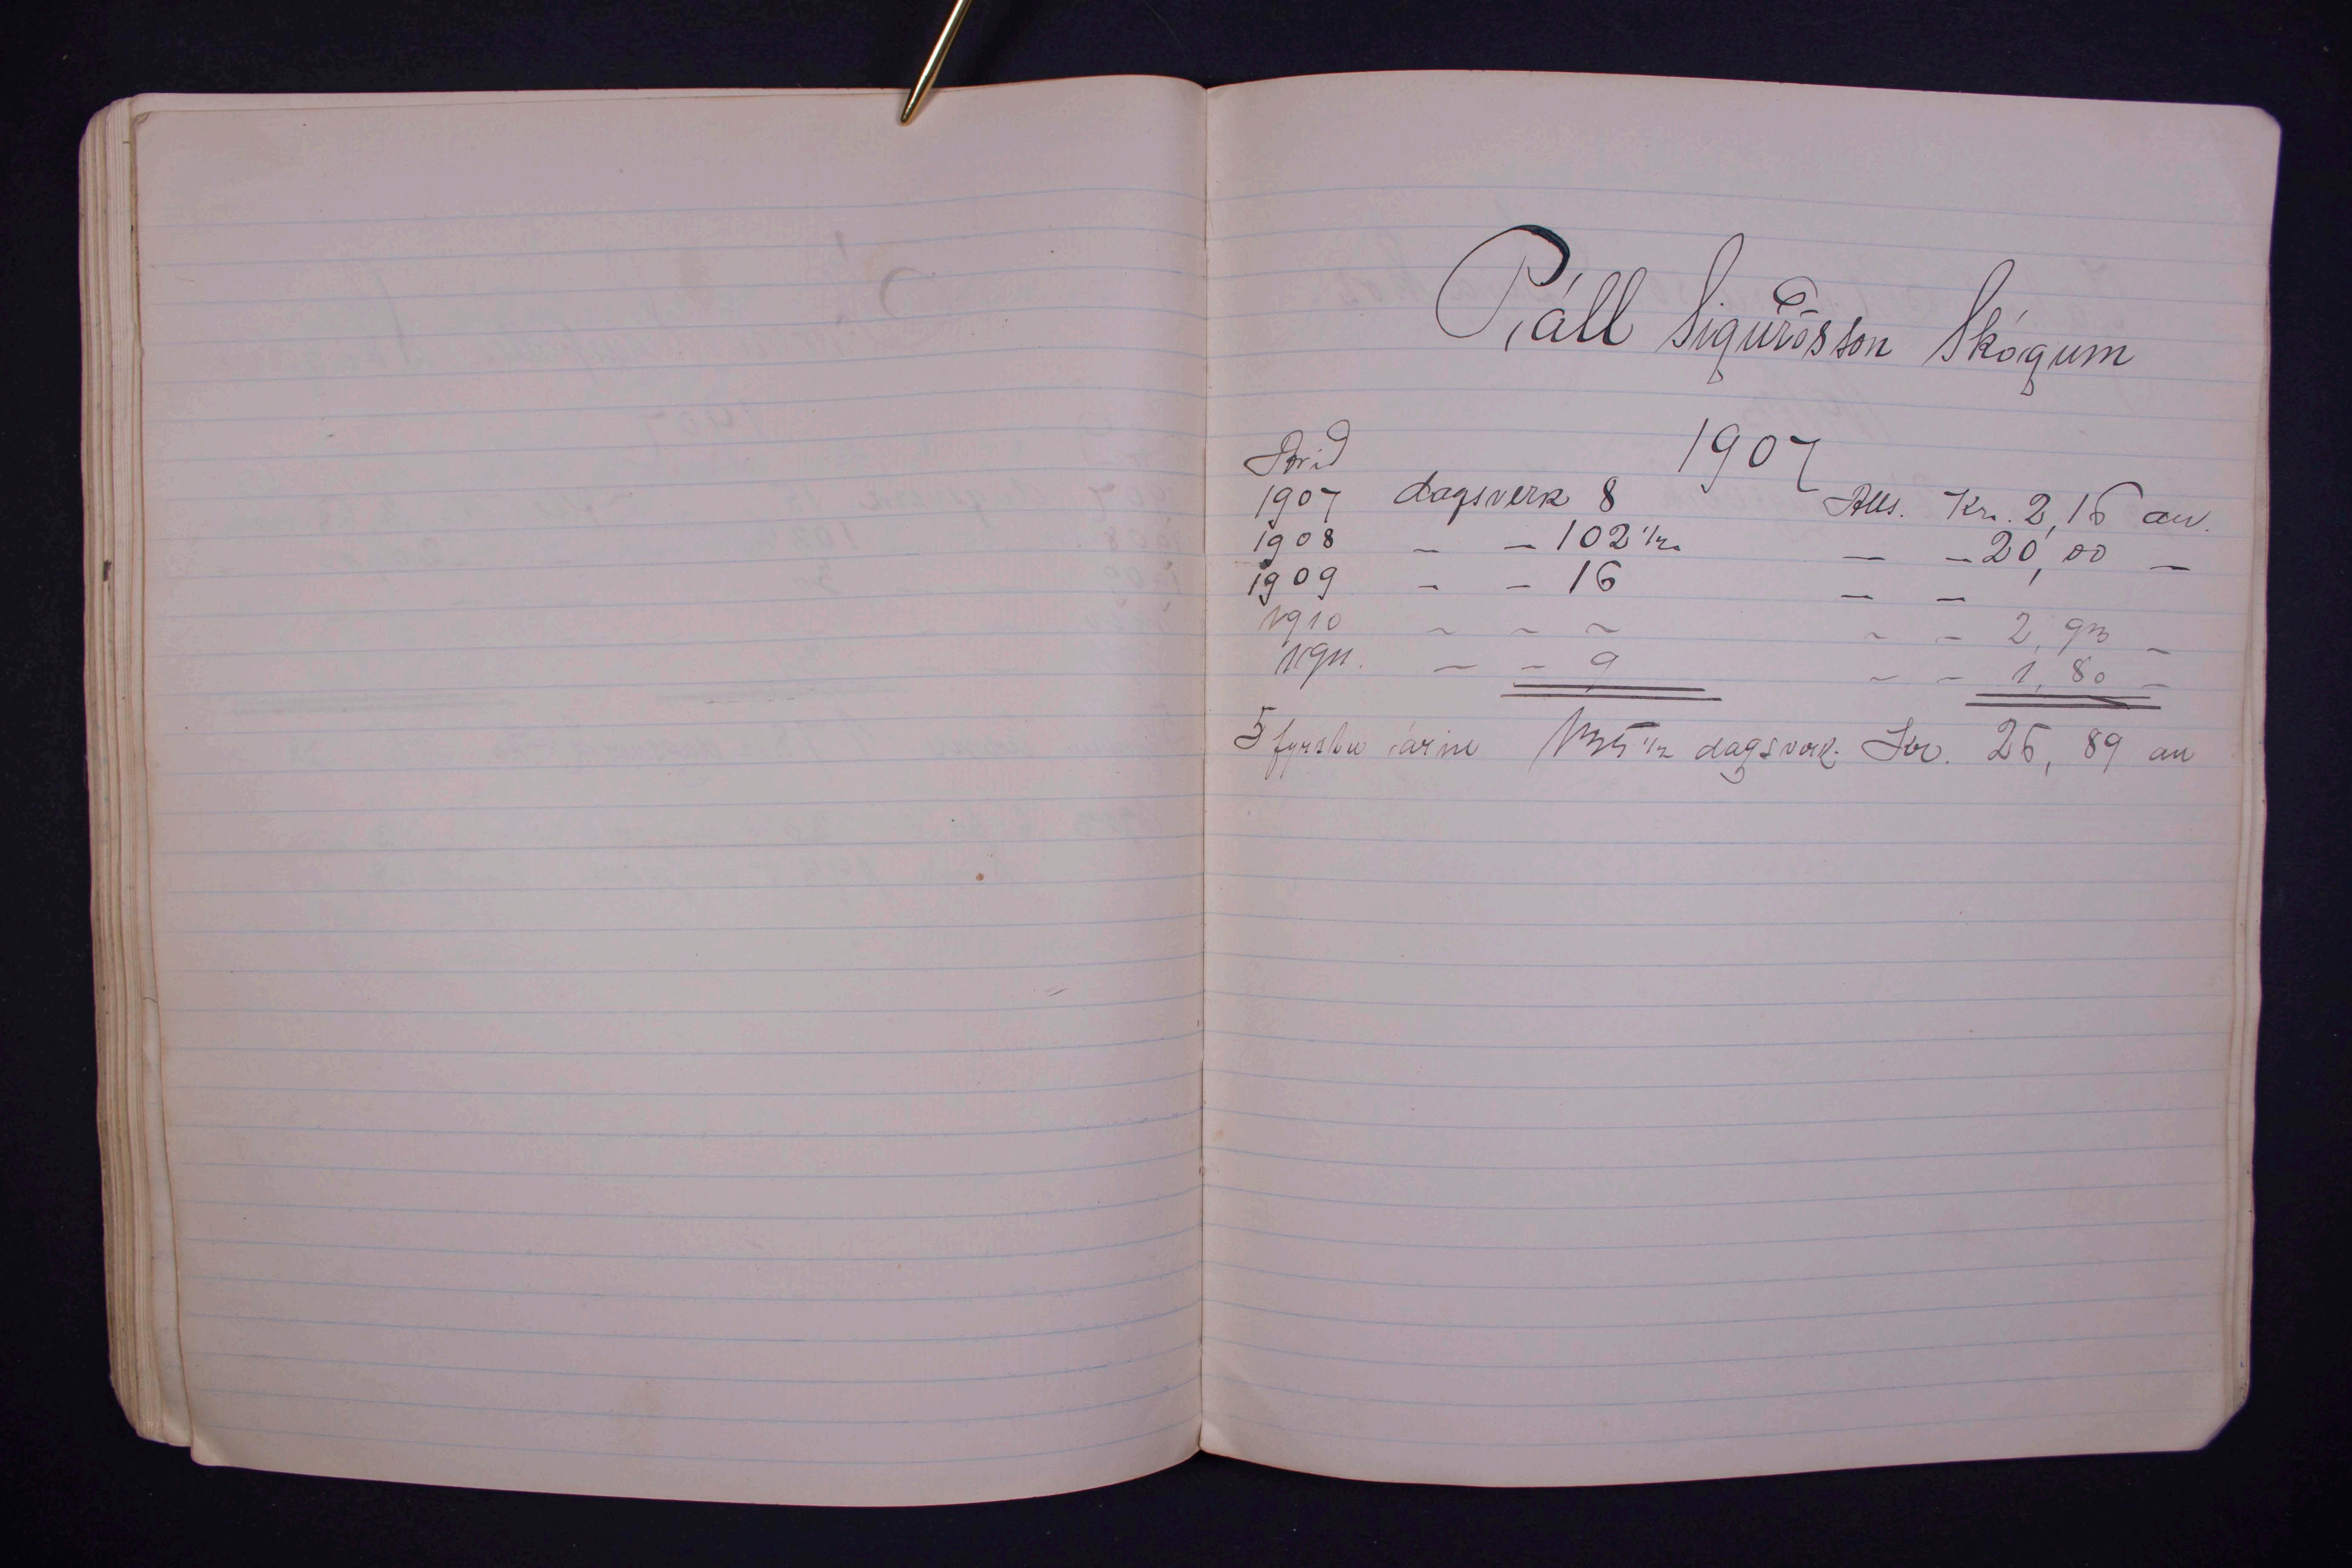 Páll Sigurðsson Skógum
1907
Árið
1907 dagsverk 8 Alls. Kr. 2,16 au.
1908 – – 102 1/2 – – 20,00 –
1909 – – 16 – –
1910 – – – – – 2,93 –
1911. – – 9 – – 1,80 –
5 fyrstu árin 135 1/2 dagsverk. Kr. 26,89 au